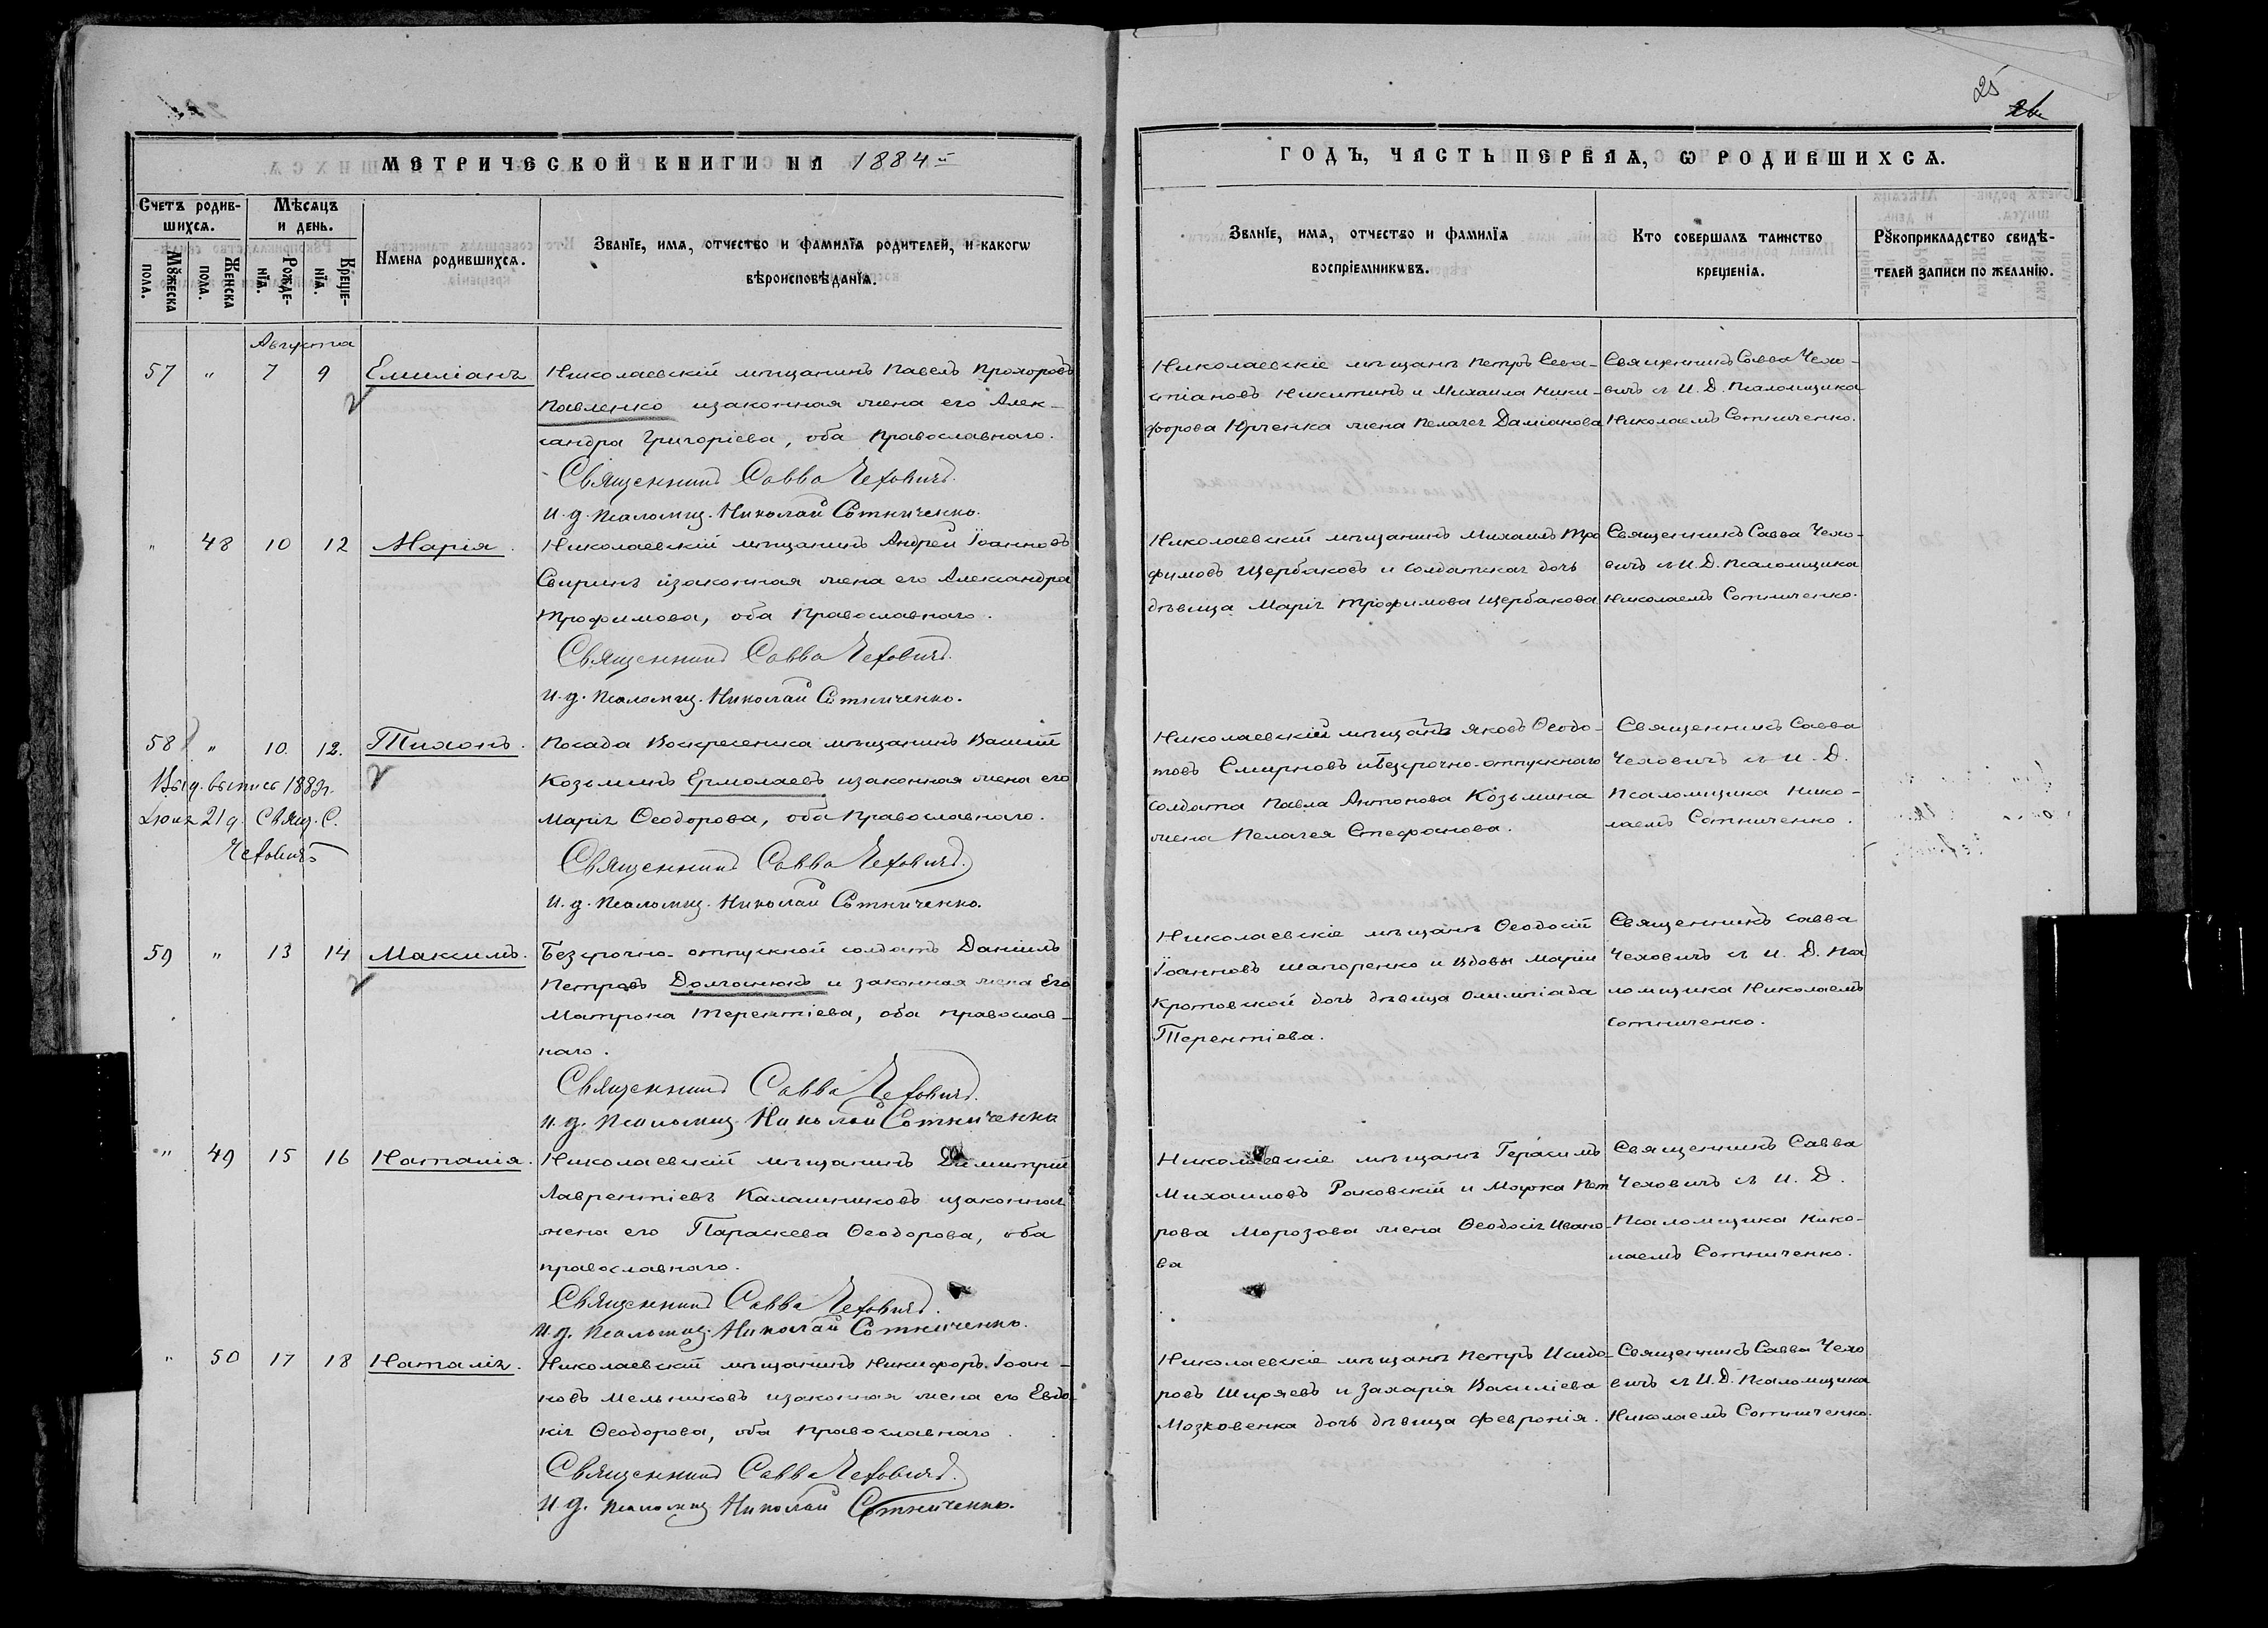 25
МЕТРИЧЕСКОЙ КНИГИ НА 1884й
ГОДЪ, ЧАСТЬ ПЕРВАЯ, Ѡ РОДИВШИХСЯ.
Счетъ родив-
шихся.
Мѣсяцъ
и день.
Мꙋжеска
пола.
Женска
пола.
Рожде-
нїя.
Креще-
нїя.
Имена родившихся.
Званїе, имя, отчество и фамилїя родителей, и какогѡ
вѣроисповѣданїя.
Званїе, имя, отчество и фамилїя
воспрїемникѡвъ.
Кто совершалъ таинство
крещенїя.
Рꙋкоприкладство свидѣ-
телей записи по желанїю.
Августа
57 " 7 9 Емиліанъ
Николаевскій мѣщанинъ Павелъ Прохоровъ
Павленко изаконная жена его Алек-
сандра Григоріева, оба Православнаго.
Священникъ Савва Чеховичъ.
И. д. Псаломщ. Николай Сотниченко.
Николаевскіе мѣщане Петръ Сева-
стіановъ Никитинъ и Михаила Ники-
форова Юрченка жена Пелагея Даміанова
Священникъ Савва Чехо-
вичъ съ И. Д. Псаломщика
Николаемъ Сотниченко.
" 48 10 12 Марія.
Николаевскій мѣщанинъ Андрей Іоанновъ
Свиринъ изаконная жена его Александра
Трофимова, оба Православнаго.
Священникъ Савва Чеховичъ.
И. д. Псаломщ. Николай Сотниченко.
Николаевскій мѣщанинъ Михаилъ Тро
фимовъ Щербаковъ и солдатская дочь
дѣвица Марія Трофимова Щербакова
Священникъ Савва Чехо-
вичъ съ И. Д. Псаломщика
Николаемъ Сотниченко.
58 " 10. 12. Тихонъ.
Выд. выпись 188
Іюля 21 д. Свящ. С.
Чеховичъ
Посада Воскресенска мѣщанинъ Василій
Козьминъ Ермолаевъ изаконная жена его
Марія Ѳеодорова, оба Православнаго.
Священникъ Савва Чеховичъ.
И. д. Псаломщ. Николай Сотниченко.
Николаевскій мѣщанъ Яковъ Ѳеодо-
товъ Смирновъ иБезсрочно-отпускнаго
солдата Павла Антонова Козьмина
жена Пелагея Стефанова.
Священникъ Савва
Чеховичъ съ И. Д.
Псаломщика Нико-
лаемъ Сотниченко.
59 " 13 14 Максимъ.
Безсрочно-отпускной солдатъ Даніилъ
Петровъ Долгонюкъ и законная жена Его
Матрона Терентіева, оба православ-
наго.
Священникъ Савва Чеховичъ.
И. д. Псаломщ. Николай Сотниченко
Николаевскіе мѣщане Ѳеодосій
Іоанновъ Шапоренко и вдовы Маріи
Кротовской дочь дѣвица Олимпіада
Терентіева.
Священникъ Савва
Чеховичъ съ И. Д. Пса
ломщика Николаемъ
Сотниченко.
" 49 15 16 Наталія.
Николаевскій мѣщанинъ Димитрій
Лаврентіевъ Калашниковъ изаконная
жена его Параскева Ѳеодорова, оба
православнаго.
Священникъ Савва Чеховичъ.
И. д. Псаломщ. Николай Сотниченко.
Николаевскіе мѣщане Герасимъ
Михаиловъ Раковскій и Марка Пет
рова Морозова жена Ѳеодосія Ивано-
ва
Священникъ Савва
Чеховичъ съ И. Д.
Псаломщика Нико-
лаемъ Сотниченко.
" 50 17 18 Наталія.
Николаевскій мѣщанинъ Никифоръ Іоан-
новъ Мельниковъ изаконная жена его Евдо-
кія Ѳеодорова, оба православнаго.
Священникъ Савва Чеховичъ.
И. д. Псаломщ. Николай Сотниченко.
Николаевскіе мѣщане Петръ Исидо-
ровъ Ширяевъ и Захарія Василіева
Мозковенка дочь дѣвица Февронія.
Священникъ Савва Чехо
вичъ съ И. Д. Псаломщика
Николаемъ Сотниченко.